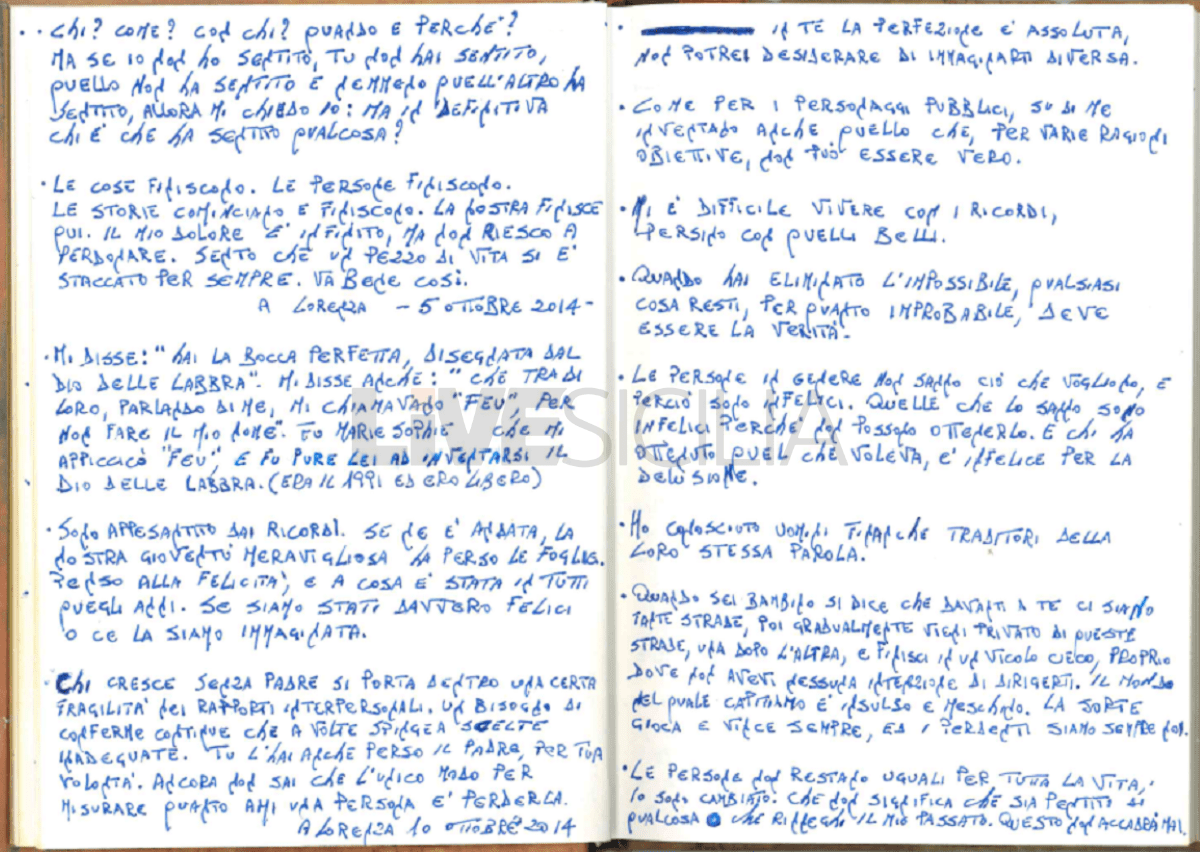 · · CHI? COME? CON CHI? QUANDO E PERCHÉ?
MA SE IO NON HO SENTITO, TU NON HAI SENTITO,
QUELLO NON HA SENTITO E NEMMENO QUELL'ALTRO HA
SENTITO, ALLORA MI CHIEDO IO: MA IN DEFINITIVA
CHI E' CHE HA SENTITO QUALCOSA?
· LE COSE FINISCONO. LE PERSONE FINISCONO.
LE STORIE COMINCIANO E FINISCONO. LA NOSTRA FINISCE
QUI. IL MIO DOLORE E' INFINITO, MA NON RIESCO A
PERDONARE. SENTO CHE UN PEZZO DI VITA SI E'
STACCATO PER SEMPRE. VA BENE COSÌ.
A LORENZA - 5 OTTOBRE 2014 -
· MI DISSE: "HAI LA BOCCA PERFETTA, DISEGNATA DAL
DIO DELLE LABBRA". MI DISSE ANCHE: "CHE TRA DI
LORO, PARLANDO DI ME, MI CHIAMAVANO "FEU", PER
NON FARE IL MIO NOME". FU MARIE SOPHIE CHE MI
APPICCICÒ "FEU", E FU PURE LEI AD INVENTARSI IL
DIO DELLE LABBRA. (ERA IL 1991 ED ERO LIBERO)
· SONO APPESANTITO DAI RICORDI. SE NE E' ANDATA, LA
NOSTRA GIOVENTÙ MERAVIGLIOSA HA PERSO LE FOGLIE.
PENSO ALLA FELICITA', E A COSA E' STATA IN TUTTI
QUEGLI ANNI. SE SIAMO STATI DAVVERO FELICI
O CE LA SIAMO IMMAGINATA.
· CHI CRESCE SENZA PADRE SI PORTA DENTRO UNA CERTA
FRAGILITA' NEI RAPPORTI INTERPERSONALI. UN BISOGNO DI
CONFERME CONTINUE CHE A VOLTE SPINGE A SCELTE
INADEGUATE. TU L'HAI ANCHE PERSO IL PADRE, PER TUA
VOLONTA'. ANCORA NON SAI CHE L'UNICO MODO PER
MISURARE QUANTO AMI UNA PERSONA E' PERDERLA.
A LORENZA 10 OTTOBRE 2014
· IN TE LA PERFEZIONE E' ASSOLUTA,
NON POTREI DESIDERARE DI IMMAGINARTI DIVERSA.
· COME PER I PERSONAGGI PUBBLICI, SU DI ME
INVENTANO ANCHE QUELLO CHE, PER VARIE RAGIONI
OBIETTIVE, NON PUÒ ESSERE VERO.
· MI E' DIFFICILE VIVERE CON I RICORDI,
PERSINO CON QUELLI BELLI.
· QUANDO HAI ELIMINATO L'IMPOSSIBILE, QUALSIASI
COSA RESTI, PER QUANTO IMPROBABILE, DEVE
ESSERE LA VERITA'.
· LE PERSONE IN GENERE NON SANNO CIÒ CHE VOGLIONO, E
PERCIÒ SONO INFELICI. QUELLE CHE LO SANNO SONO
INFELICI PERCHÉ NON POSSONO OTTENERLO. E CHI HA
OTTENUTO QUEL CHE VOLEVA, E' INFELICE PER LA
DELUSIONE.
· HO CONOSCIUTO UOMINI FINANCHE TRADITORI DELLA
LORO STESSA PAROLA.
· QUANDO SEI BAMBINO SI DICE CHE DAVANTI A TE CI SIANO
TANTE STRADE, POI GRADUALMENTE VIENI PRIVATO DI QUESTE
STRADE, UNA DOPO L'ALTRA, E FINISCI IN UN VICOLO CIECO, PROPRIO
DOVE NON AVEVI NESSUNA INTENZIONE DI DIRIGERTI. IL MONDO
NEL QUALE CAPITIAMO E' INSULSO E MESCHINO. LA SORTE
GIOCA E VINCE SEMPRE, ED I PERDENTI SIAMO SEMPRE NOI.
· LE PERSONE NON RESTANO UGUALI PER TUTTA LA VITA,
IO SONO CAMBIATO. CHE NON SIGNIFICA CHE SIA PENTITO DI
QUALCOSA O CHE RINNEGHI IL MIO PASSATO. QUESTO NON ACCADRÀ MAI.
LIVESICILIA